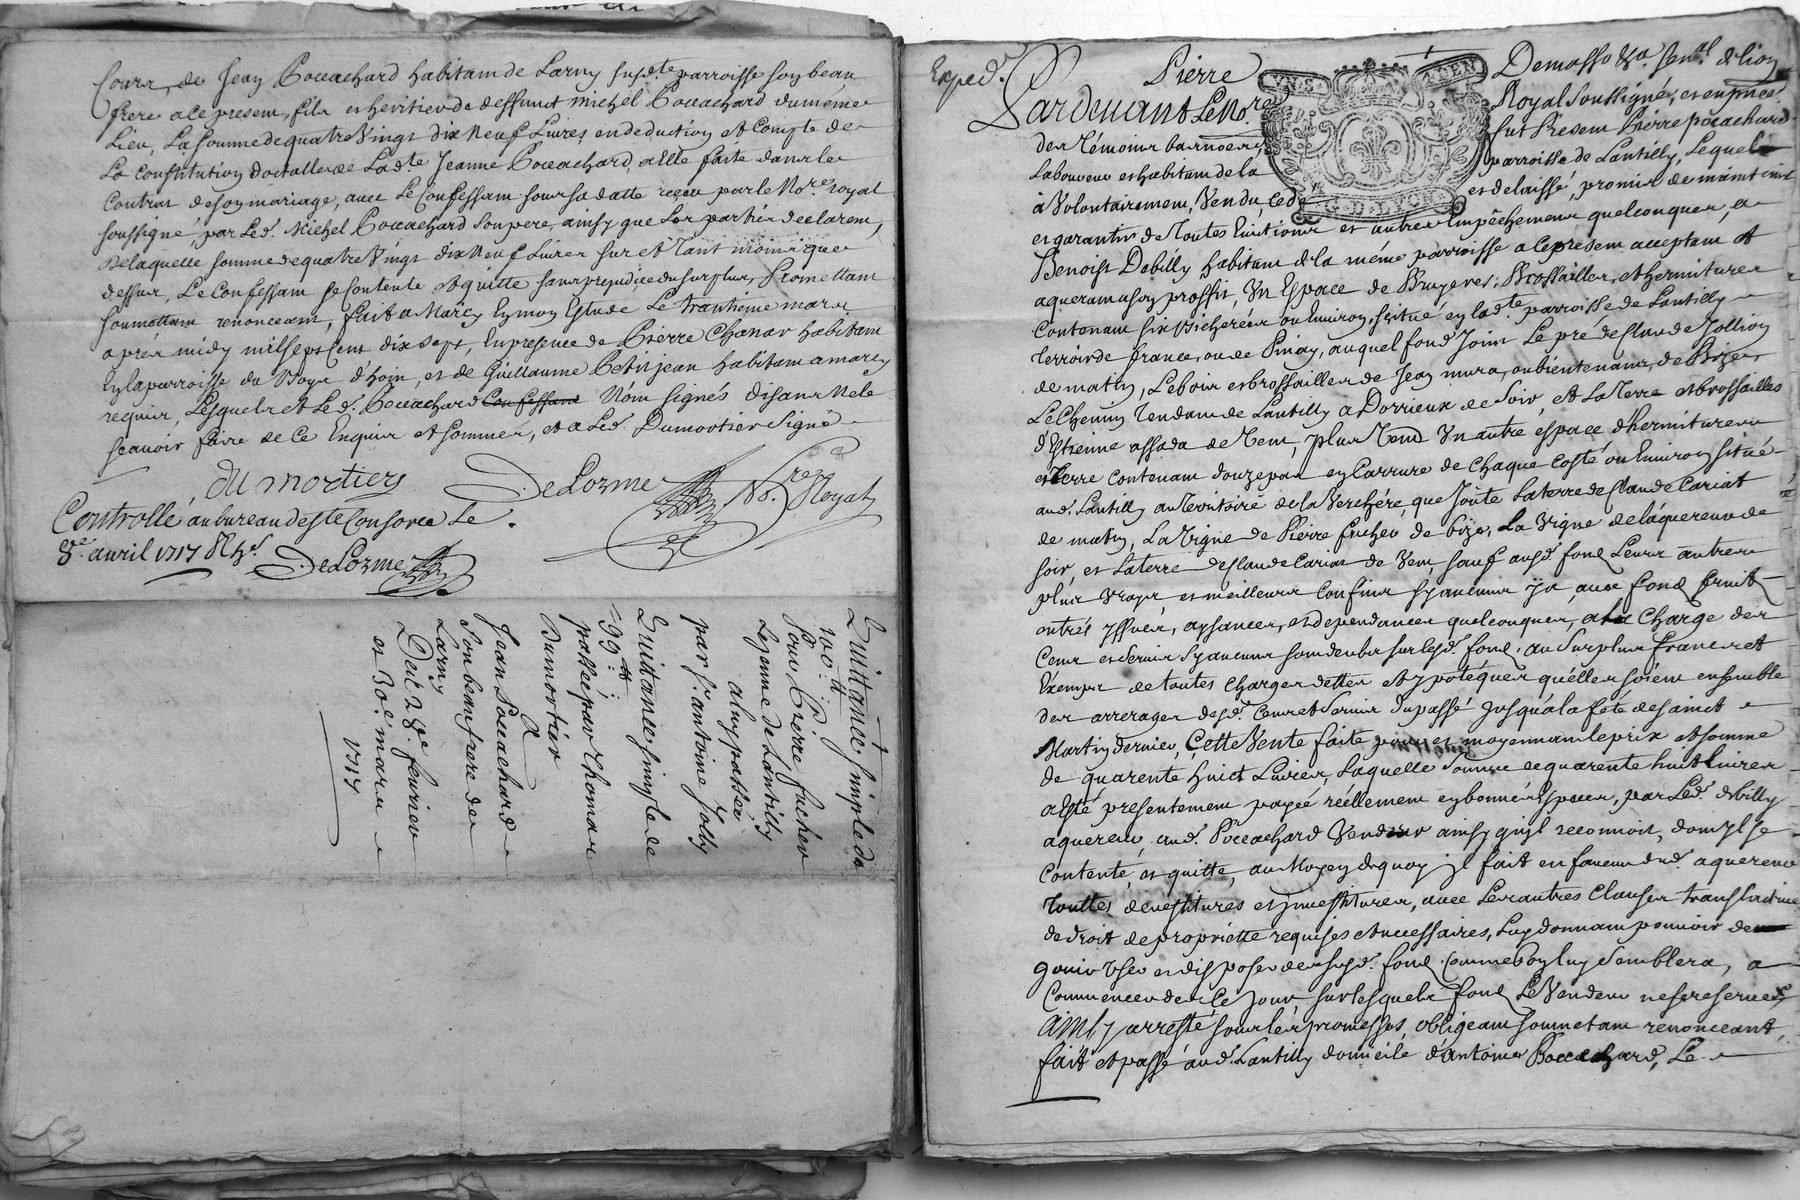 Cours, de Jean Pocachard habitam de Larny susd.te parroisse son beau
frere a ce presem, fils et heritier de deffunct Michel Pocachard du meme
Lieu, La somme de quatre Vingt dix Neuf Livres, en deduction et Compte de
La Constitution dotalle de Lad.te Jeanne Pocachard, a Elle faite dans le
Contrat de son mariage, avec Le Confessam sous sa datte receu par le No.re royal
soussigné, par Led. Michel Pocachard son pere, ainsy que Les parties declarem,
de laquelle somme de quatre Vingt dix Neuf Livres sur et tant moins que
dessus, Le Confessam se Contente et quitte sans prejudice du surplus, Promettam
soumettam renonceam, fait a Marcy Ey mon Estude Le trantieme mars
apres midy mil sept Cent dix sept, En presence de Pierre Chanav habitam
En la parroisse du Boye d'hoin, et de Guillaume Petitjean habitam a marcy
requis, Lesquels et Led. Pocachard Confessam N'ont signés disant ne le
scavoir faire de Ce Enquis et sommés, et a Led. Dumortier Signé
du mortier DeLorme No.re Royal
Controllé au bureau deste Consorce Le
8.e avril 1717 R
DeLorme
Quittance simple de
100.tt
Pour Pierre fucher
Leyenne de Lantilly
a luy passée
par s.r antoine Jolly
Quittance simple de
99.tt
passée par thomas
Dumortier
a
Jean Pocachard
son beau frere de
Larny
Du 28.e fevrier
et 30.e mars
1717
Exped.
Pierre Demasso
Pardevant Le No.re Royal Soussigné, et en pnce
des Témoins bas nommés, fut Presem Pierre pocachard
Laboureur et habitam de la parroisse de Lantilly, Lequel
à Volontairement, Vendu, Cedé et delaissé, promis de maintenir
et garantir de toutes Evictions et autres Empêchemens quelconques, a
Benoist Debilly habitam de la même parroisse a ce presem acceptam et
aqueram a son proffit, Un Espace de Bruyeres, Brossailles, et hermitures
Contenam six bicherées ou Environ, scitué en lad.te parroisse de Lantilly
terroir de france, ou de Pinay, auquel fond Joint Le pré de Claude Jollion
de matin, Le bois et brossailles de Jean mura, ou bientenans, de Bize,
Le Chemin tendam de Lantilly a Dorrieux de Soir, et La Terre et brossailles
d'Estienne assada de Vent, plus Vend Un autre espace d'hermitures
et terre contenam douze pas en Carrure de Chaque Costé ou Environ situé
aud. Lantilly au Territoire de la Verchère, que Joute La terre de Claude Cariat
de matin, La Vigne de Pierre fucher de bize, La Vigne de l'aquereur de
soir, et La terre de Claude Cariat de Vent, sauf ausd. fond Leurs autres
plus Vrays, et meilleurs Confins sy aucuns y a, avec fond fruit
entrés yssues, aysances, et dependances quelconques, a la Charge des
Cens et Servis sy aucuns sont deubs sur lesd. fond, au Surplus francs et
Exempts de toutes Charges dettes et ypoteques qu'elles soient ensemble
des arrerages desd. Cens et Servis du passé Jusqu'a la féte de saint
Martin dernier, Cette Vente faite pour et moyennam le prix et somme
de quarente huict Livres, Laquelle Somme de quarente huit Livres
a Esté presentement payée réellement en bonnes Especes, par Led. debilly
aquereur, aud. Pocachard Vendeur ainsy qu'il reconnoit, dont il se
Contente, et quitte, au Moyen de quoy il fait en faveur dud. aquereur
touttes devestitures et investitures, avec Les autres Clauses translatives
de droit de propriette requises et necessaires, Luy donnam pouvoir de
Jouir User et disposer desd. fond Comme bon luy Semblera, a
Commencer de ce Jour, sur lesquels fond Le Vendeur ne se reserve
Ainsy arresté, sous les promesses, obligeam soumetam renonceant,
fait et passé aud. Lantilly domicile d'Antoine Pocachard, Le